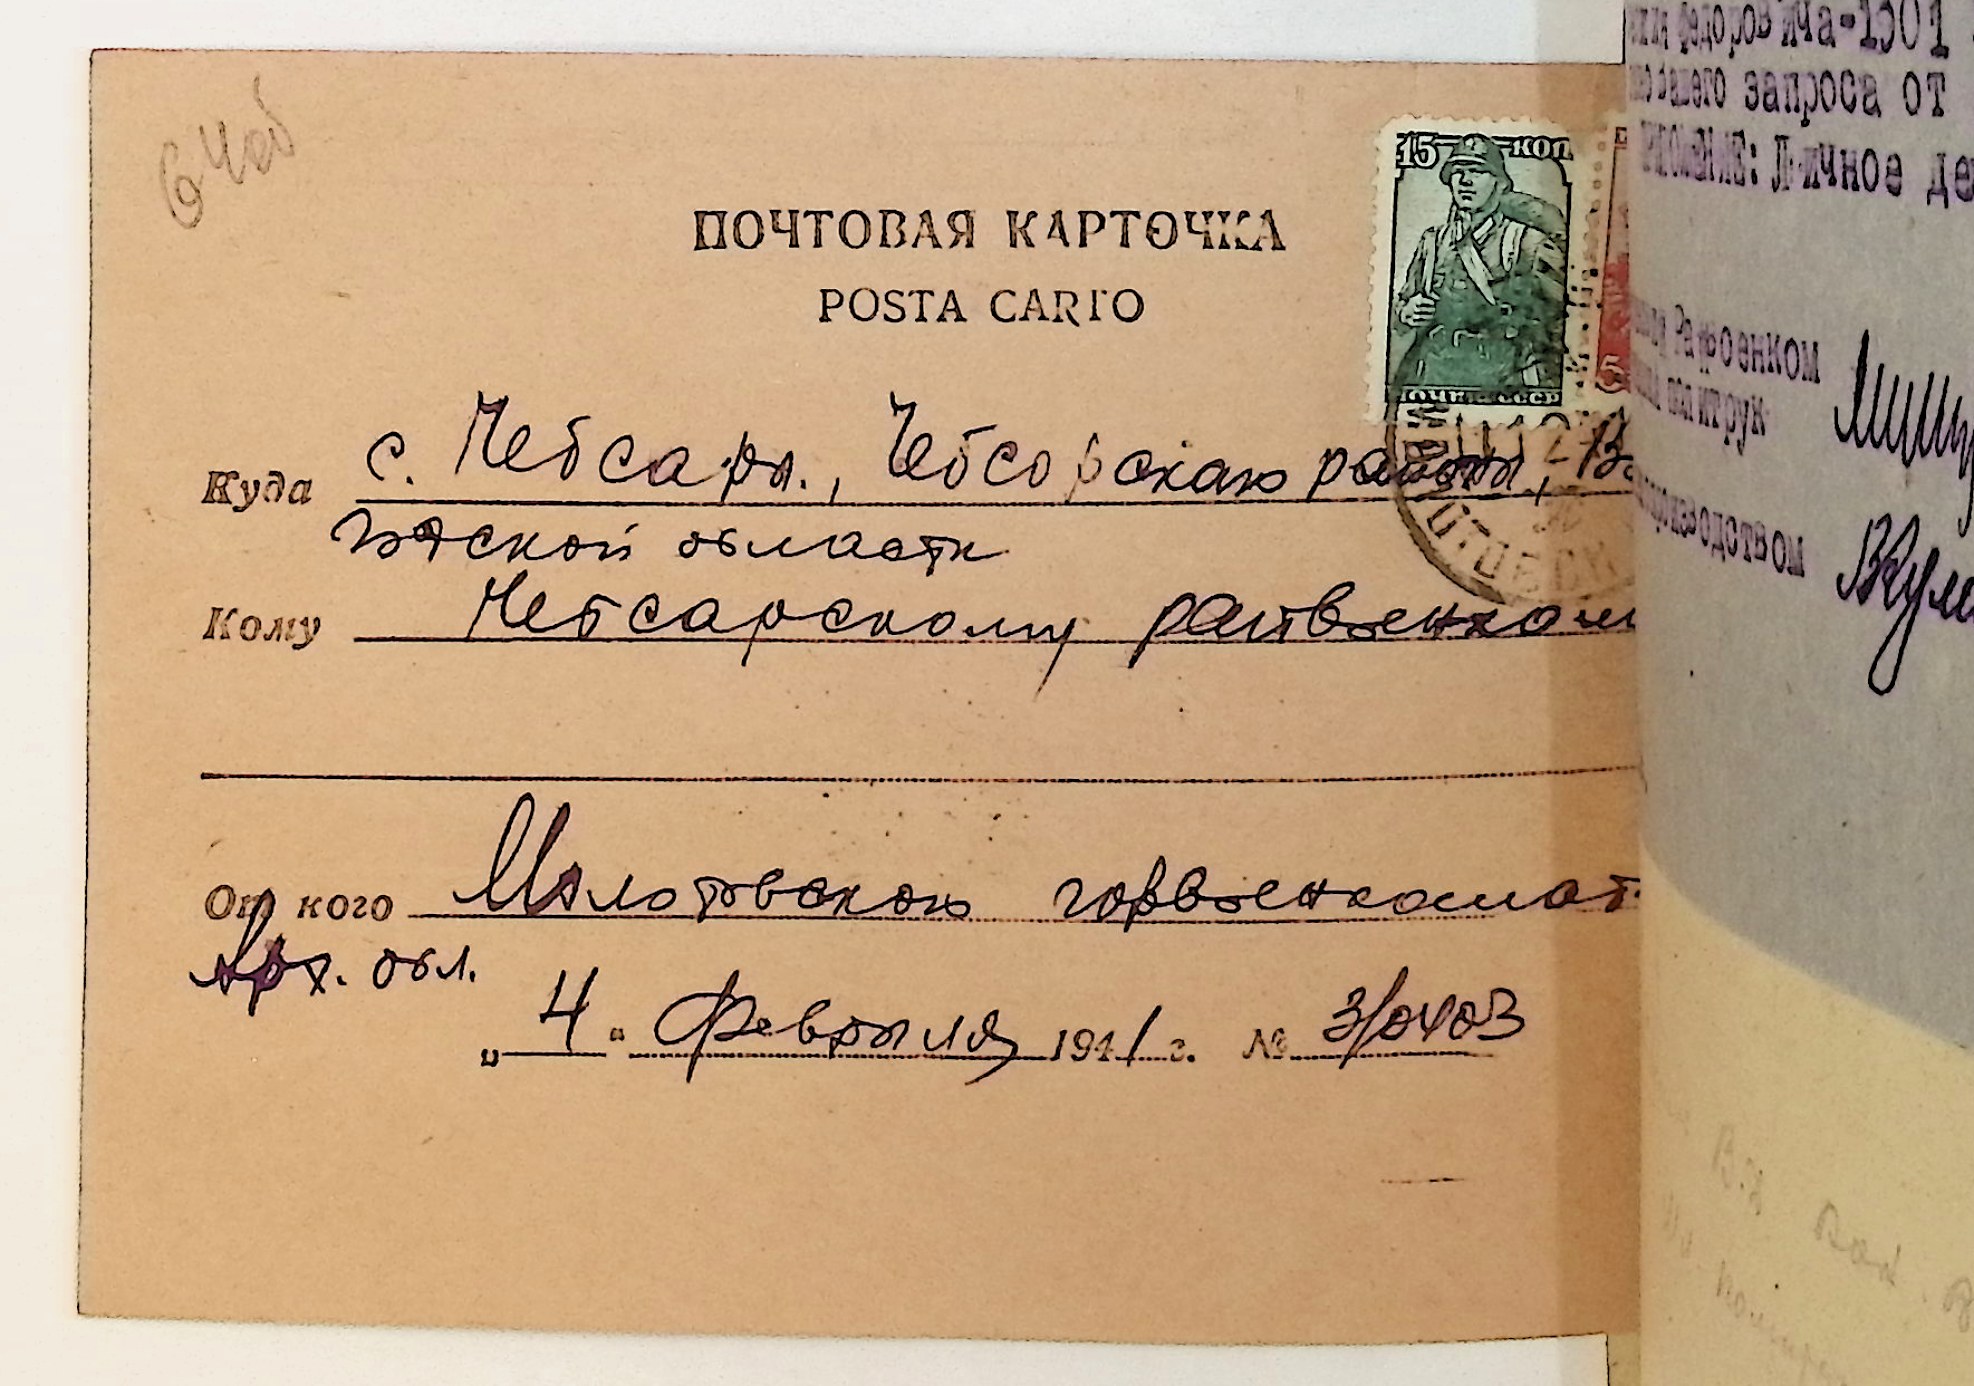 15 КОП
ПОЧТОВАЯ КАРТОЧКА
POSTA CARTO
ПОЧТА СССР
5
Куда с. Чебсара, Чебсорского района, Во
годской области
Кому Чебсарскому райвоенком
От кого Молотовского горвоенкомат
Арх. обл.
„ 4 " Февраля 1941 г. № 3/0403
Федоровича-1901
вашего запроса от
Личное де
Райвоенком
политрук
производством